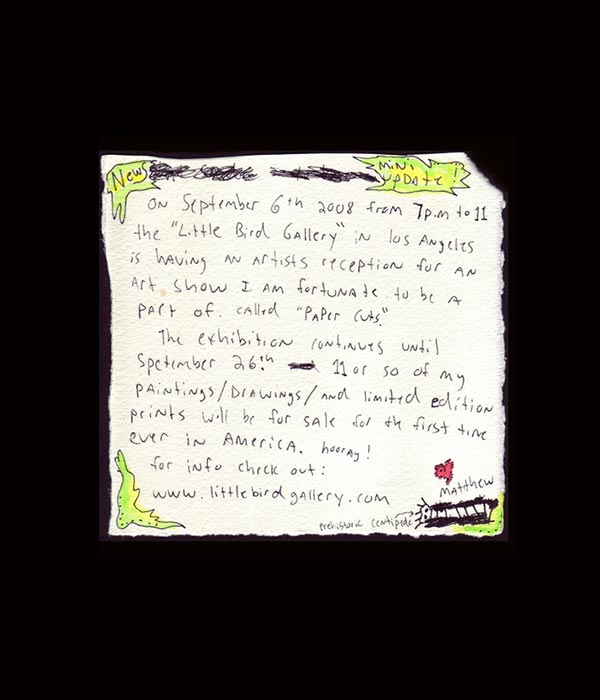 News
Mini
UPDate!
On September 6th 2008 from 7p.m to 11
the "Little Bird Gallery" in Los Angeles
is having an artists reception for an
Art show I am fortunate to be a
part of. called "Paper Cuts."
The exhibition continues until
Spetember 26th 11 or so of my
paintings/drawings/and limited edition
prints will be for sale for the first time
ever in America. hooray!
for info check out:
www.littlebirdgallery.com
Matthew
prehistoric centipede